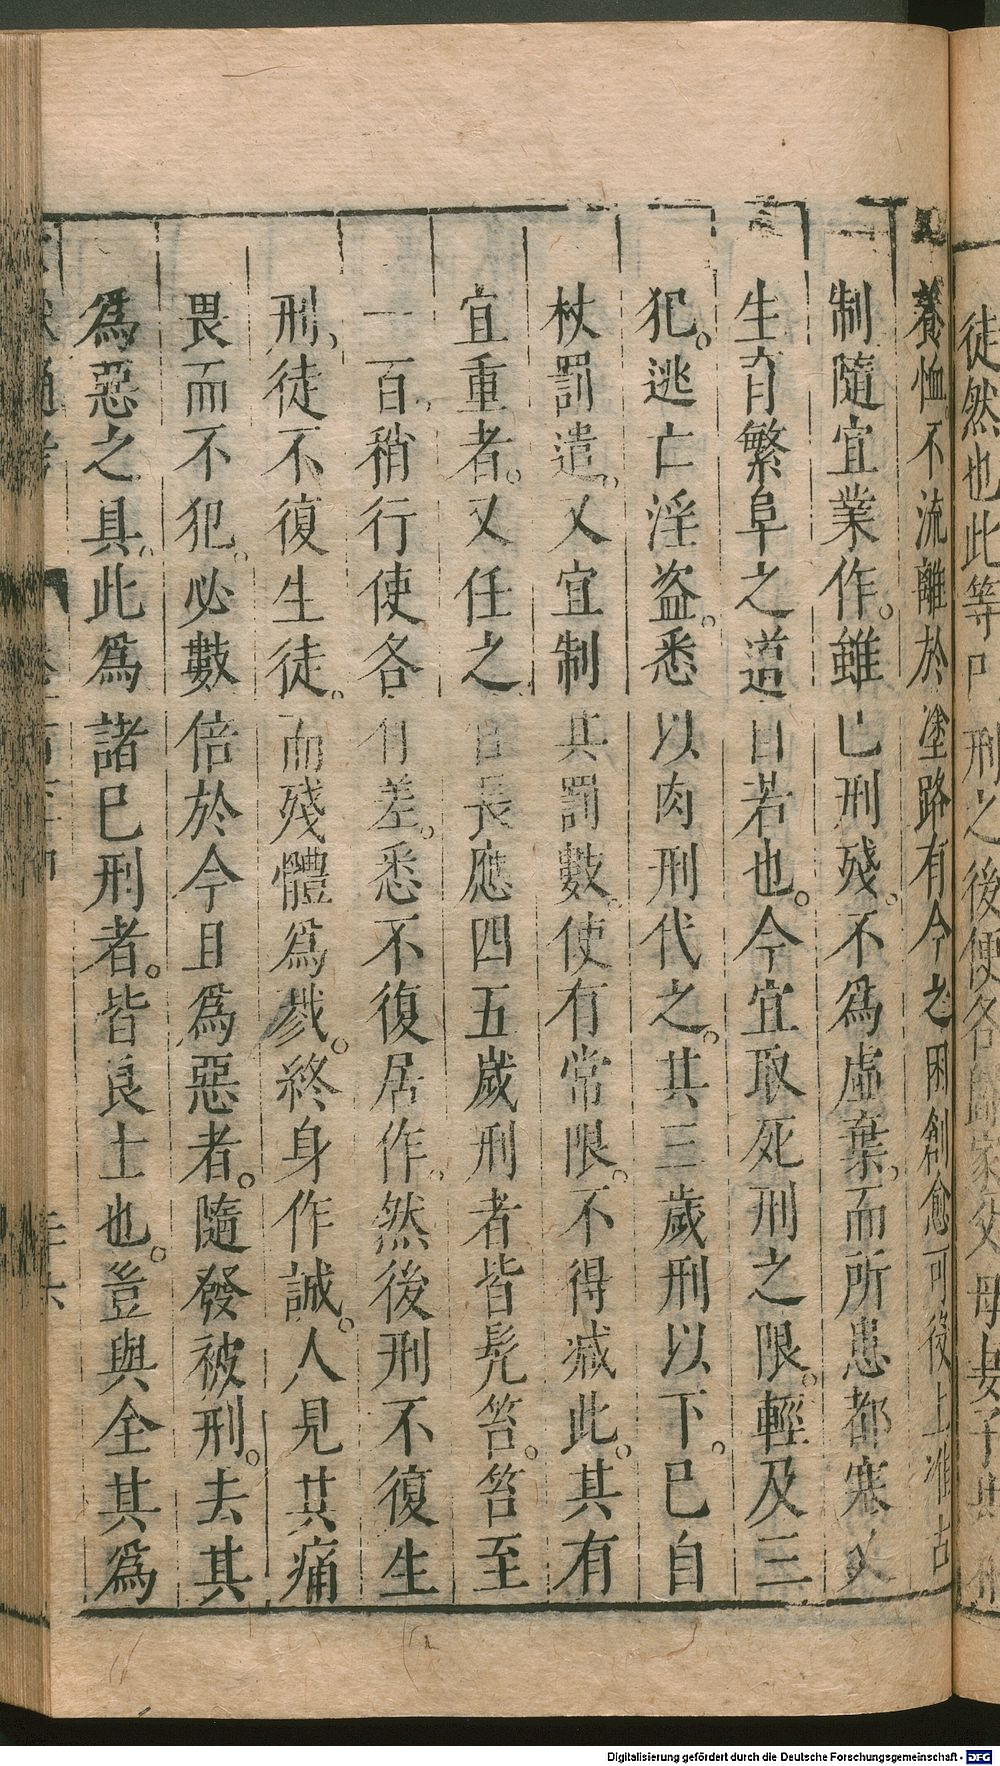 徒然也此等冂刑之後便各歸家父母妻子
養恤不流離於塗路有今之困創愈可役上准古
制隨宜業作。雖已刑殘。不爲虛棄。而所患都寒又
生育繁阜之道自若也。今宜取死刑之限。輕及三
犯。逃亡淫盜。悉以肉刑代之。其三歲刑以下。已自
杖罰遣。又宜制其罰數。使有常限。不得減此。其有
宜重者。又任之官長應四五歲刑者皆髡笞。笞至
一百。稍行使各有差。悉不復居作。然後刑不復生
刑。徒不復生徒。而殘體爲戮。終身作誡。人見其痛
畏而不犯。必數倍於今且爲惡者。隨發被刑。去其
爲惡之具。此爲諸已刑者。皆良士也。豈與全其爲
Digitalisierung gefördert durch die Deutsche Forschungsgemeinschaft - DFG